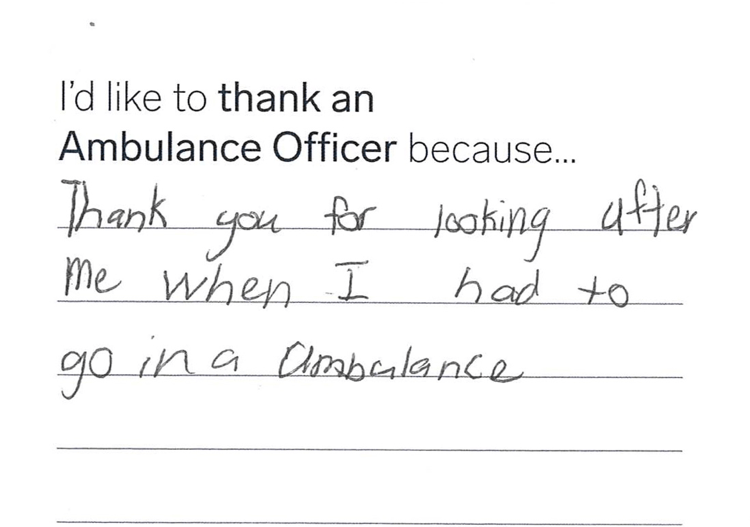 I'd like to thank an
Ambulance Officer because...
Thank you for looking after
Me when I had to
go in a ambalance